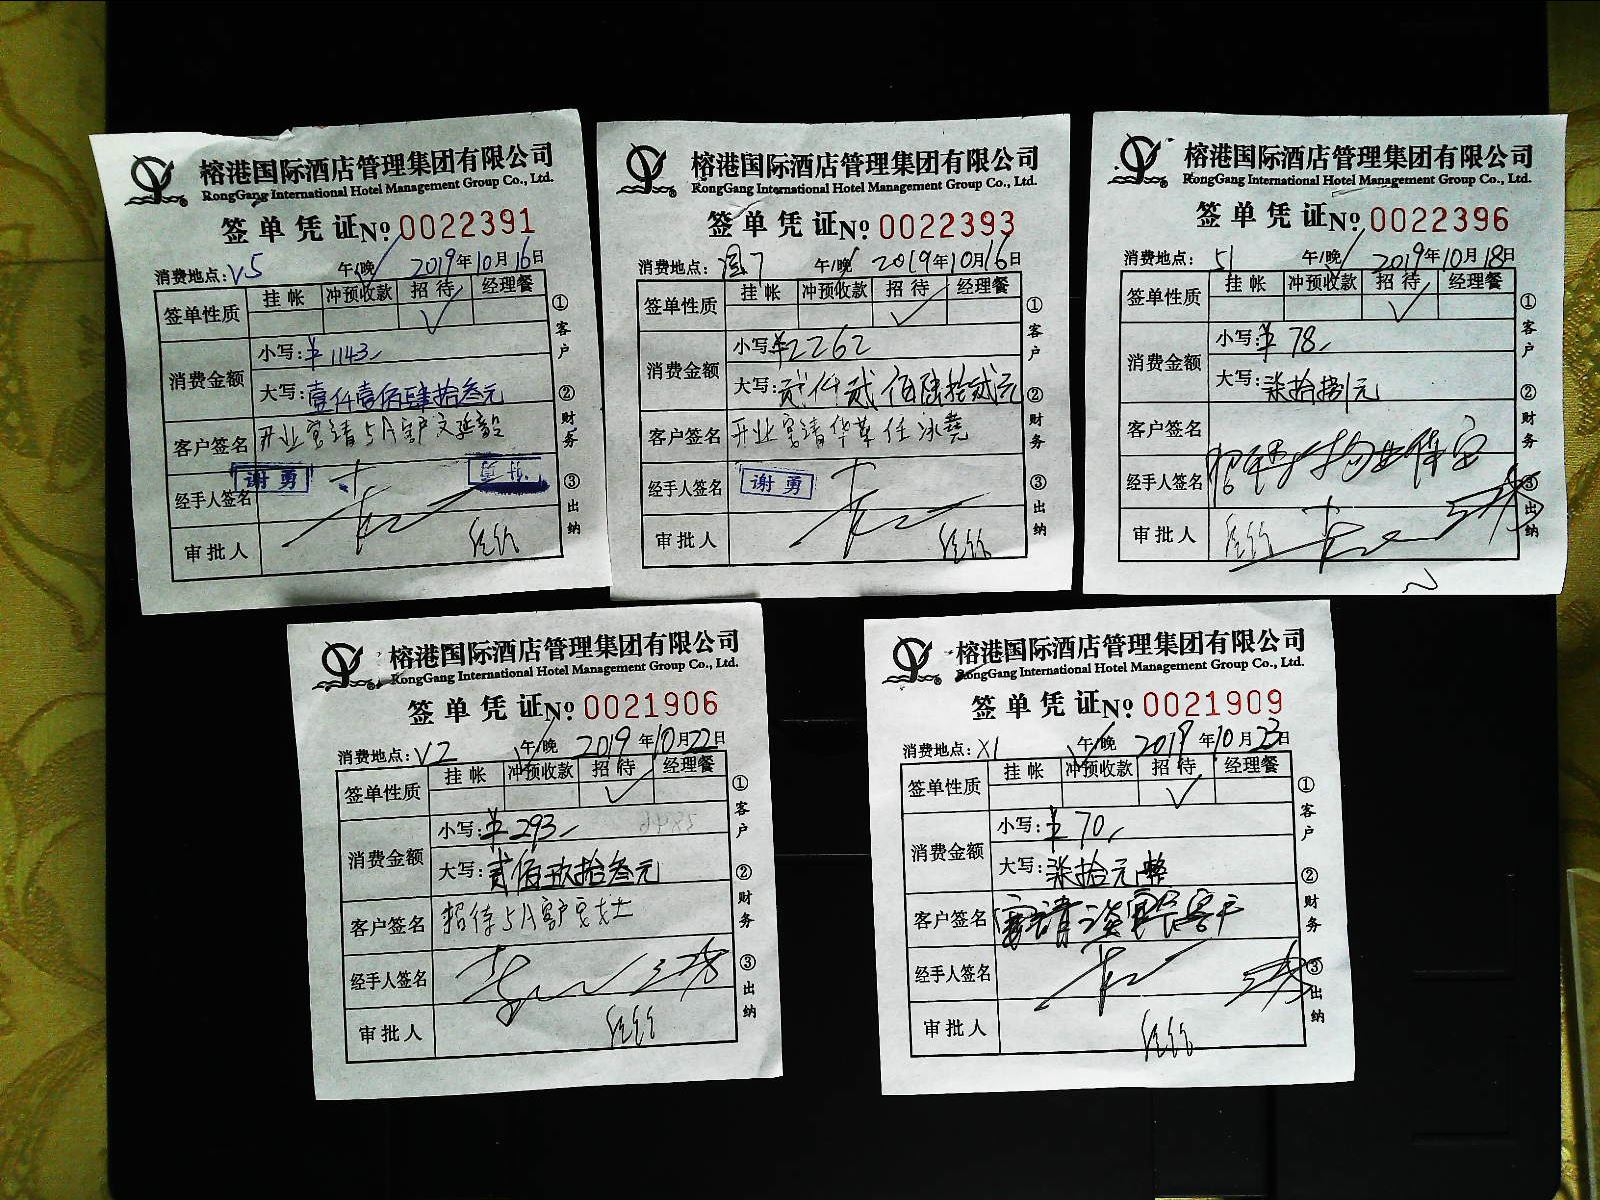 榕港国际酒店管理集团有限公司
RongGang International Hotel Management Group Co., Ltd.
签单凭证 No. 0022391
消费地点: V5 午/晚 2019年10月16日
签单性质 挂帐 冲预收款 招待 经理餐
消费金额 小写: ¥1143
大写: 壹仟壹佰肆拾叁元
客户签名 开业宴请5A客户文延毅
经手人签名 谢勇
审批人
①客户 ②财务 ③出纳
榕港国际酒店管理集团有限公司
RongGang International Hotel Management Group Co., Ltd.
签单凭证 No. 0022393
消费地点: 7 午/晚 2019年10月16日
签单性质 挂帐 冲预收款 招待 经理餐
消费金额 小写: ¥2262
大写: 贰仟贰佰陆拾贰元
客户签名 开业宴请华莱任冰尧
经手人签名 谢勇
审批人
①客户 ②财务 ③出纳
榕港国际酒店管理集团有限公司
RongGang International Hotel Management Group Co., Ltd.
签单凭证 No. 0022396
消费地点: 51 午/晚 2019年10月18日
签单性质 挂帐 冲预收款 招待 经理餐
消费金额 小写: ¥78
大写: 柒拾捌元
客户签名
招待 物业保安
经手人签名
审批人
①客户 ②财务 ③出纳
榕港国际酒店管理集团有限公司
RongGang International Hotel Management Group Co., Ltd.
签单凭证 No. 0021906
消费地点: V2 午/晚 2019年10月22日
签单性质 挂帐 冲预收款 招待 经理餐
消费金额 小写: ¥293
大写: 贰佰玖拾叁元
客户签名 招待5A客户 女士
经手人签名
审批人
①客户 ②财务 ③出纳
榕港国际酒店管理集团有限公司
RongGang International Hotel Management Group Co., Ltd.
签单凭证 No. 0021909
消费地点: X1 午/晚 2019年10月23日
签单性质 挂帐 冲预收款 招待 经理餐
消费金额 小写: ¥70
大写: 柒拾元整
客户签名 宴请 客户
经手人签名
审批人
①客户 ②财务 ③出纳